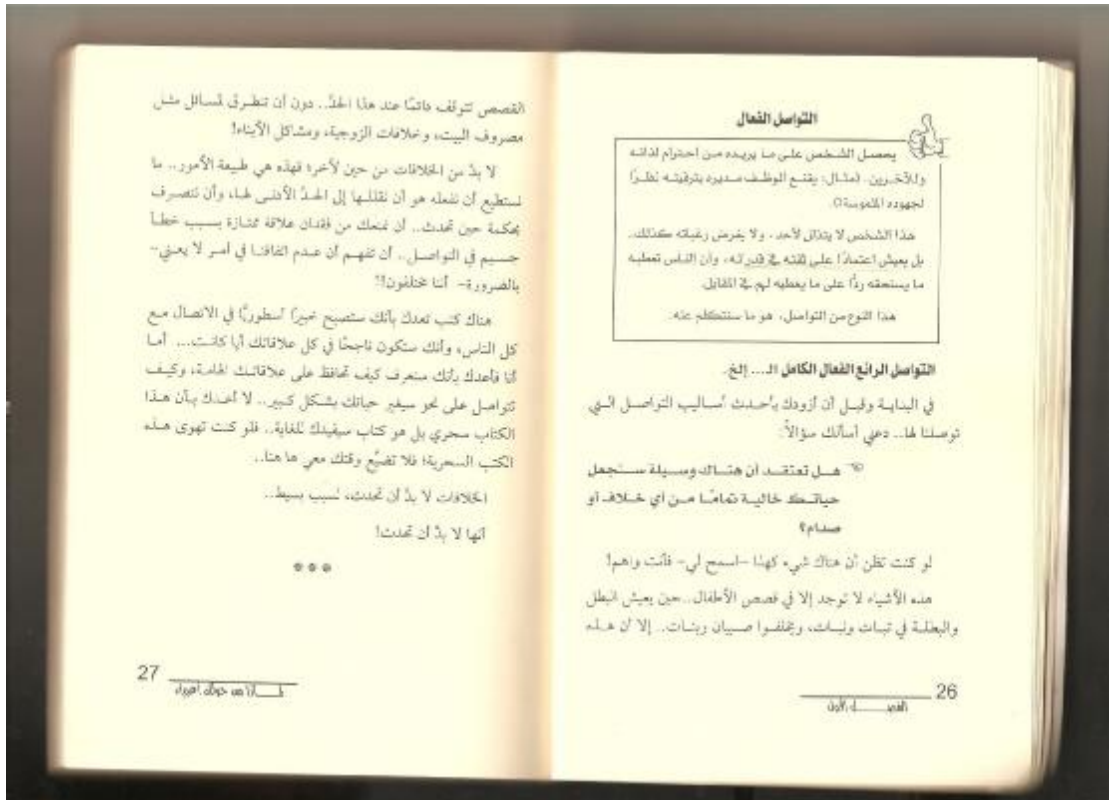 التواصل الفعال
يحصل الشخص على ما يريده من احترام لذاته
وللآخرين. (مثال: يقنع الموظف مديره بترقيته نظرًا
لجهوده الملموسة).
هذا الشخص لا يتذلل لأحد، ولا يفرض رغباته كذلك..
بل يعيش اعتمادًا على ثقته في قدراته، وأن الناس تعطيه
ما يستحقه ردًّا على ما يعطيه لهم في المقابل.
هذا النوع من التواصل، هو ما سنتكلم عنه.
التواصل الرائع الفعال الكامل الـ.... إلخ.
في البداية وقبل أن أزودك بأحدث أساليب التواصل التي
توصلنا لها... دعني أسألك سؤالاً:
هل تعتقد أن هناك وسيلة ستجعل
حياتك خالية تمامًا من أي خلاف أو
صدام؟
لو كنت تظن أن هناك شيء كهذا –اسمح لي– فأنت واهم!
هذه الأشياء لا توجد إلا في قصص الأطفال.. حين يعيش البطل
والبطلة في تبات ونبات، ويخلفوا صبيان وبنات.. إلا أن هذه
26
الفصل الأول
القصص تتوقف دائمًا عند هذا الحدّ.. دون أن تتطرق لمسائل مثل
مصروف البيت، وخلافات الزوجية، ومشاكل الأبناء!
لا بدّ من الخلافات من حين لآخر؛ فهذه هي طبيعة الأمور.. ما
نستطيع أن نفعله هو أن نقللها إلى الحدّ الأدنى لها، وأن نتصرف
بحكمة حين تحدث.. أن نمنعك من فقدان علاقة ممتازة بسبب خطأ
جسيم في التواصل.. أن تفهم أن عدم اتفاقنا في أمر لا يعني–
بالضرورة– أننا مختلفون!؟
هناك كتب تعدك بأنك ستصبح خبيرًا أسطوريًّا في الاتصال مع
كل الناس، وأنك ستكون ناجحًا في كل علاقاتك أيا كانت... أما
أنا فأعدك بأنك ستعرف كيف تحافظ على علاقاتك الهامة، وكيف
تتواصل على نحو سيغير حياتك بشكل كبير.. لا أعدك بأن هذا
الكتاب سحري بل هو كتاب سيفيدك للغاية.. فلو كنت تهوى هذه
الكتب السحرية؛ فلا تضيّع وقتك معي ها هنا..
الخلافات لا بدّ أن تحدث، لسبب بسيط..
أنها لا بدّ أن تحدث!
27